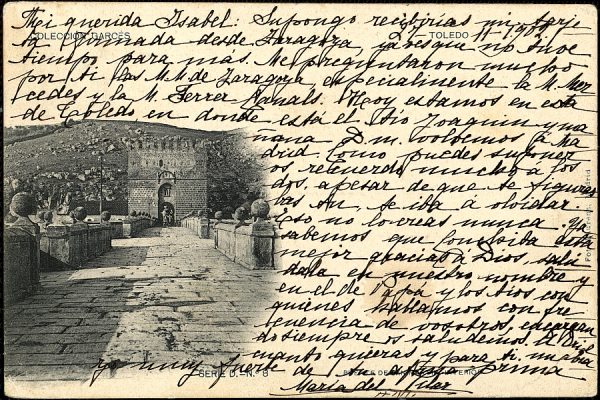 Mi querida Isabel: Supongo recibirias mi tarje
COLECCIÓN GARCÉS
TOLEDO
ta firmada desde Zaragoza, ya ves que no tuve
tiempo para más. Me preguntaron mucho
por ti las M.M. de Zaragoza especialmente la M. Mer
cedes y la M. Ferrer Canals. Hoy estamos en esta
de Toledo en donde está el tio Joaquin y ma
ñana D. m. volvemos a Ma
drid. Como puedes suponer
os recuerdo mucho a los
dos, apesar de que te figura
bas tu, se iba a olvidar.
Eso no lo creas nunca. Ya
sabemos que Conchita esta
mejor gracias a Dios, salú
dala en nuestro nombre y
en el de Papá y los tios con
quienes hablamos con fre
cuencia de vosotros, encargan
do siempre os saludemos. A
cuanto quieras y para ti un abra
zo muy fuerte de tu affma prima
SERIE D.-N.º 8
Maria del Pilar